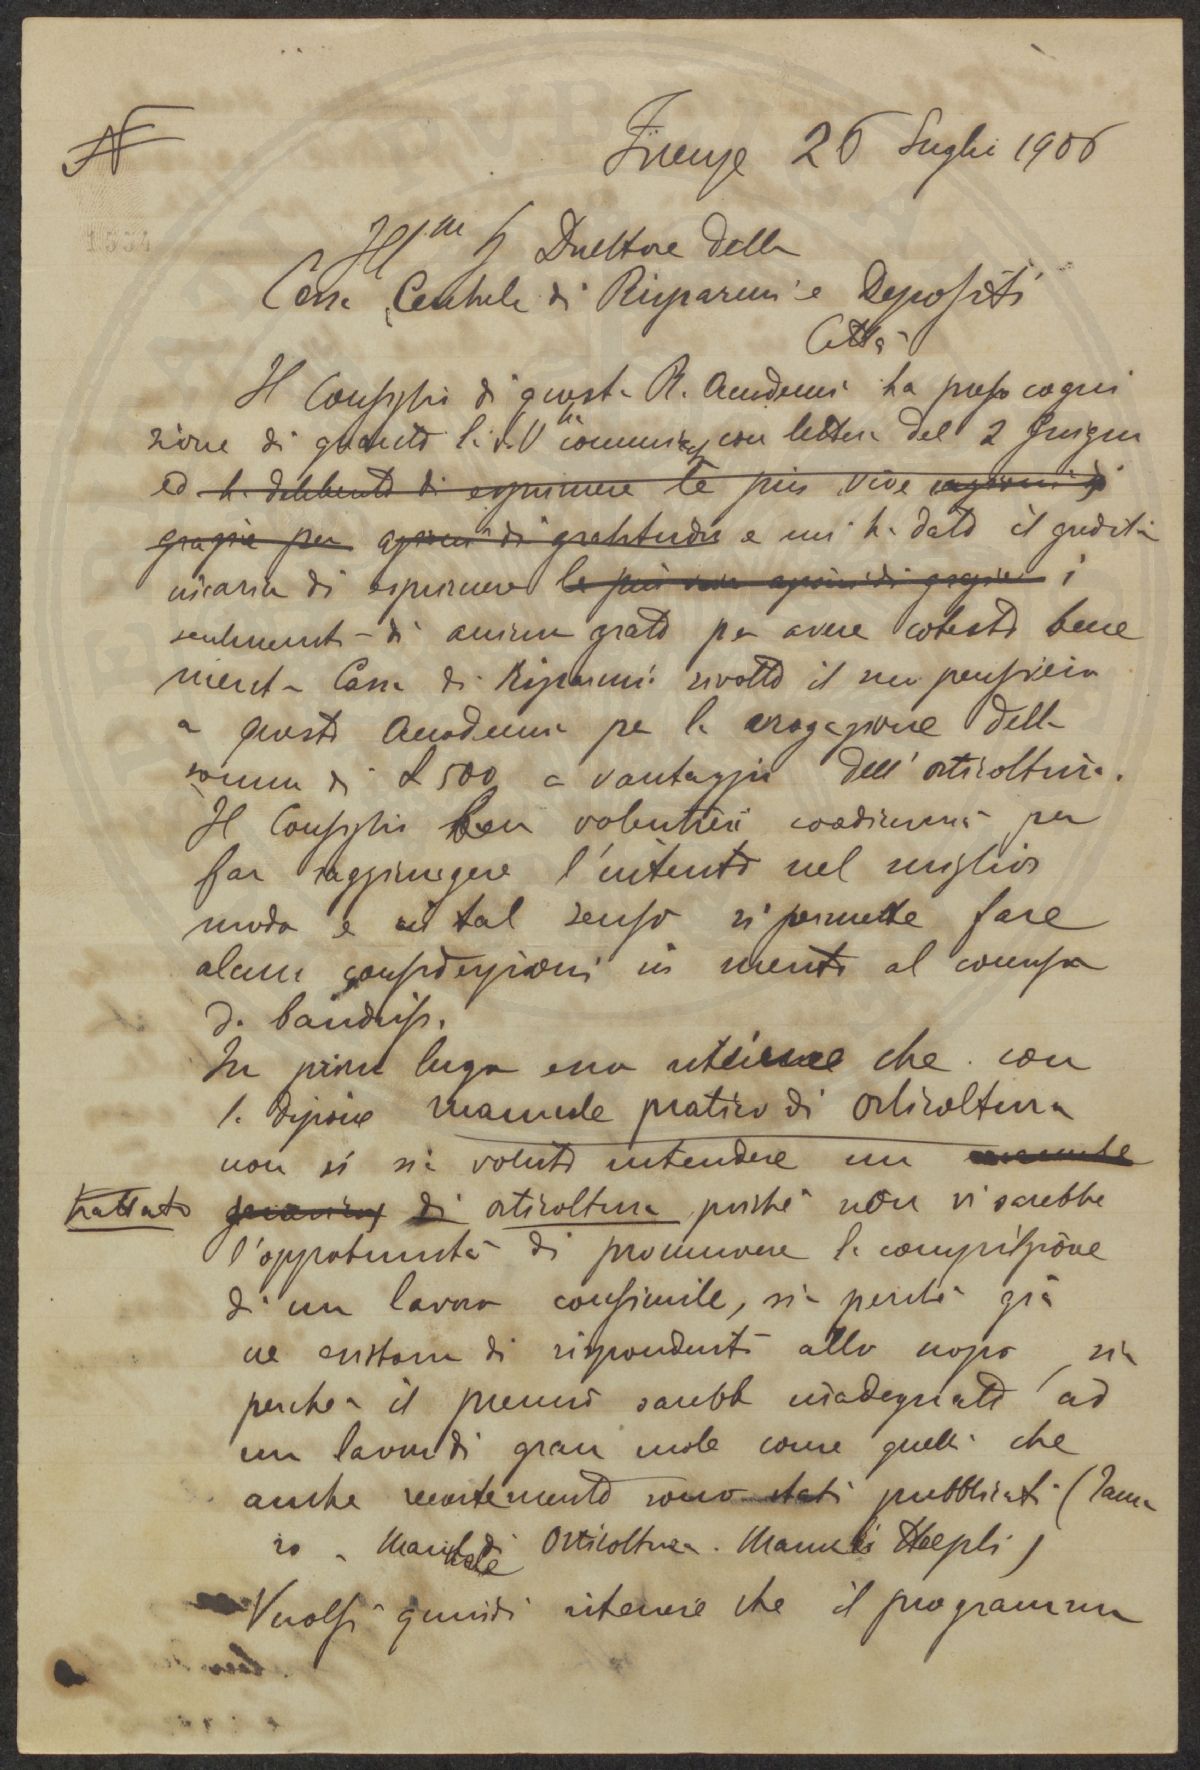 Firenze 26 Luglio 1906
Ill.mo Sg Direttore della
Cassa Centrale di Risparmi e Depositi
Città
Il Consiglio di questa R. Accademia ha preso cogni
zione di quanto la S.V comunica con lettera del 2 Giugno
ed ha deliberato di esprimere le più vive
grazie per di gratitudine e mi ha dato il gradito
incarico di esprimere le più vive di grazie i
sentimenti di animo grato per avere cotesta bene
merita Cassa di Risparmi rivolto il suo pensiero
a questa Accademia per la erogazione della
somma di L 500 a vantaggio dell'orticoltura.
Il Consiglio ben volentieri coadiuverà per
far raggiungere l'intento nel miglior
modo e in tal senso si permette fare
alcune considerazioni in merito al concorso
da bandirsi.
In primo luogo esso ritiene che con
la dizione manuale pratico di orticoltura
non si sia voluto intendere un manuale
trattato di orticoltura poichè non vi sarebbe
l'opportunità di promuovere la compilazione
di un lavoro consimile, sia perchè già
ne esistono di rispondenti allo scopo, sia
perchè il premio sarebbe inadeguato ad
un lavoro di gran mole come quelli che
anche recentemente sono stati pubblicati (Tama
ro - Manuale di Orticoltura. Manuali Hoepli)
Vuolsi quindi ritenere che il programma